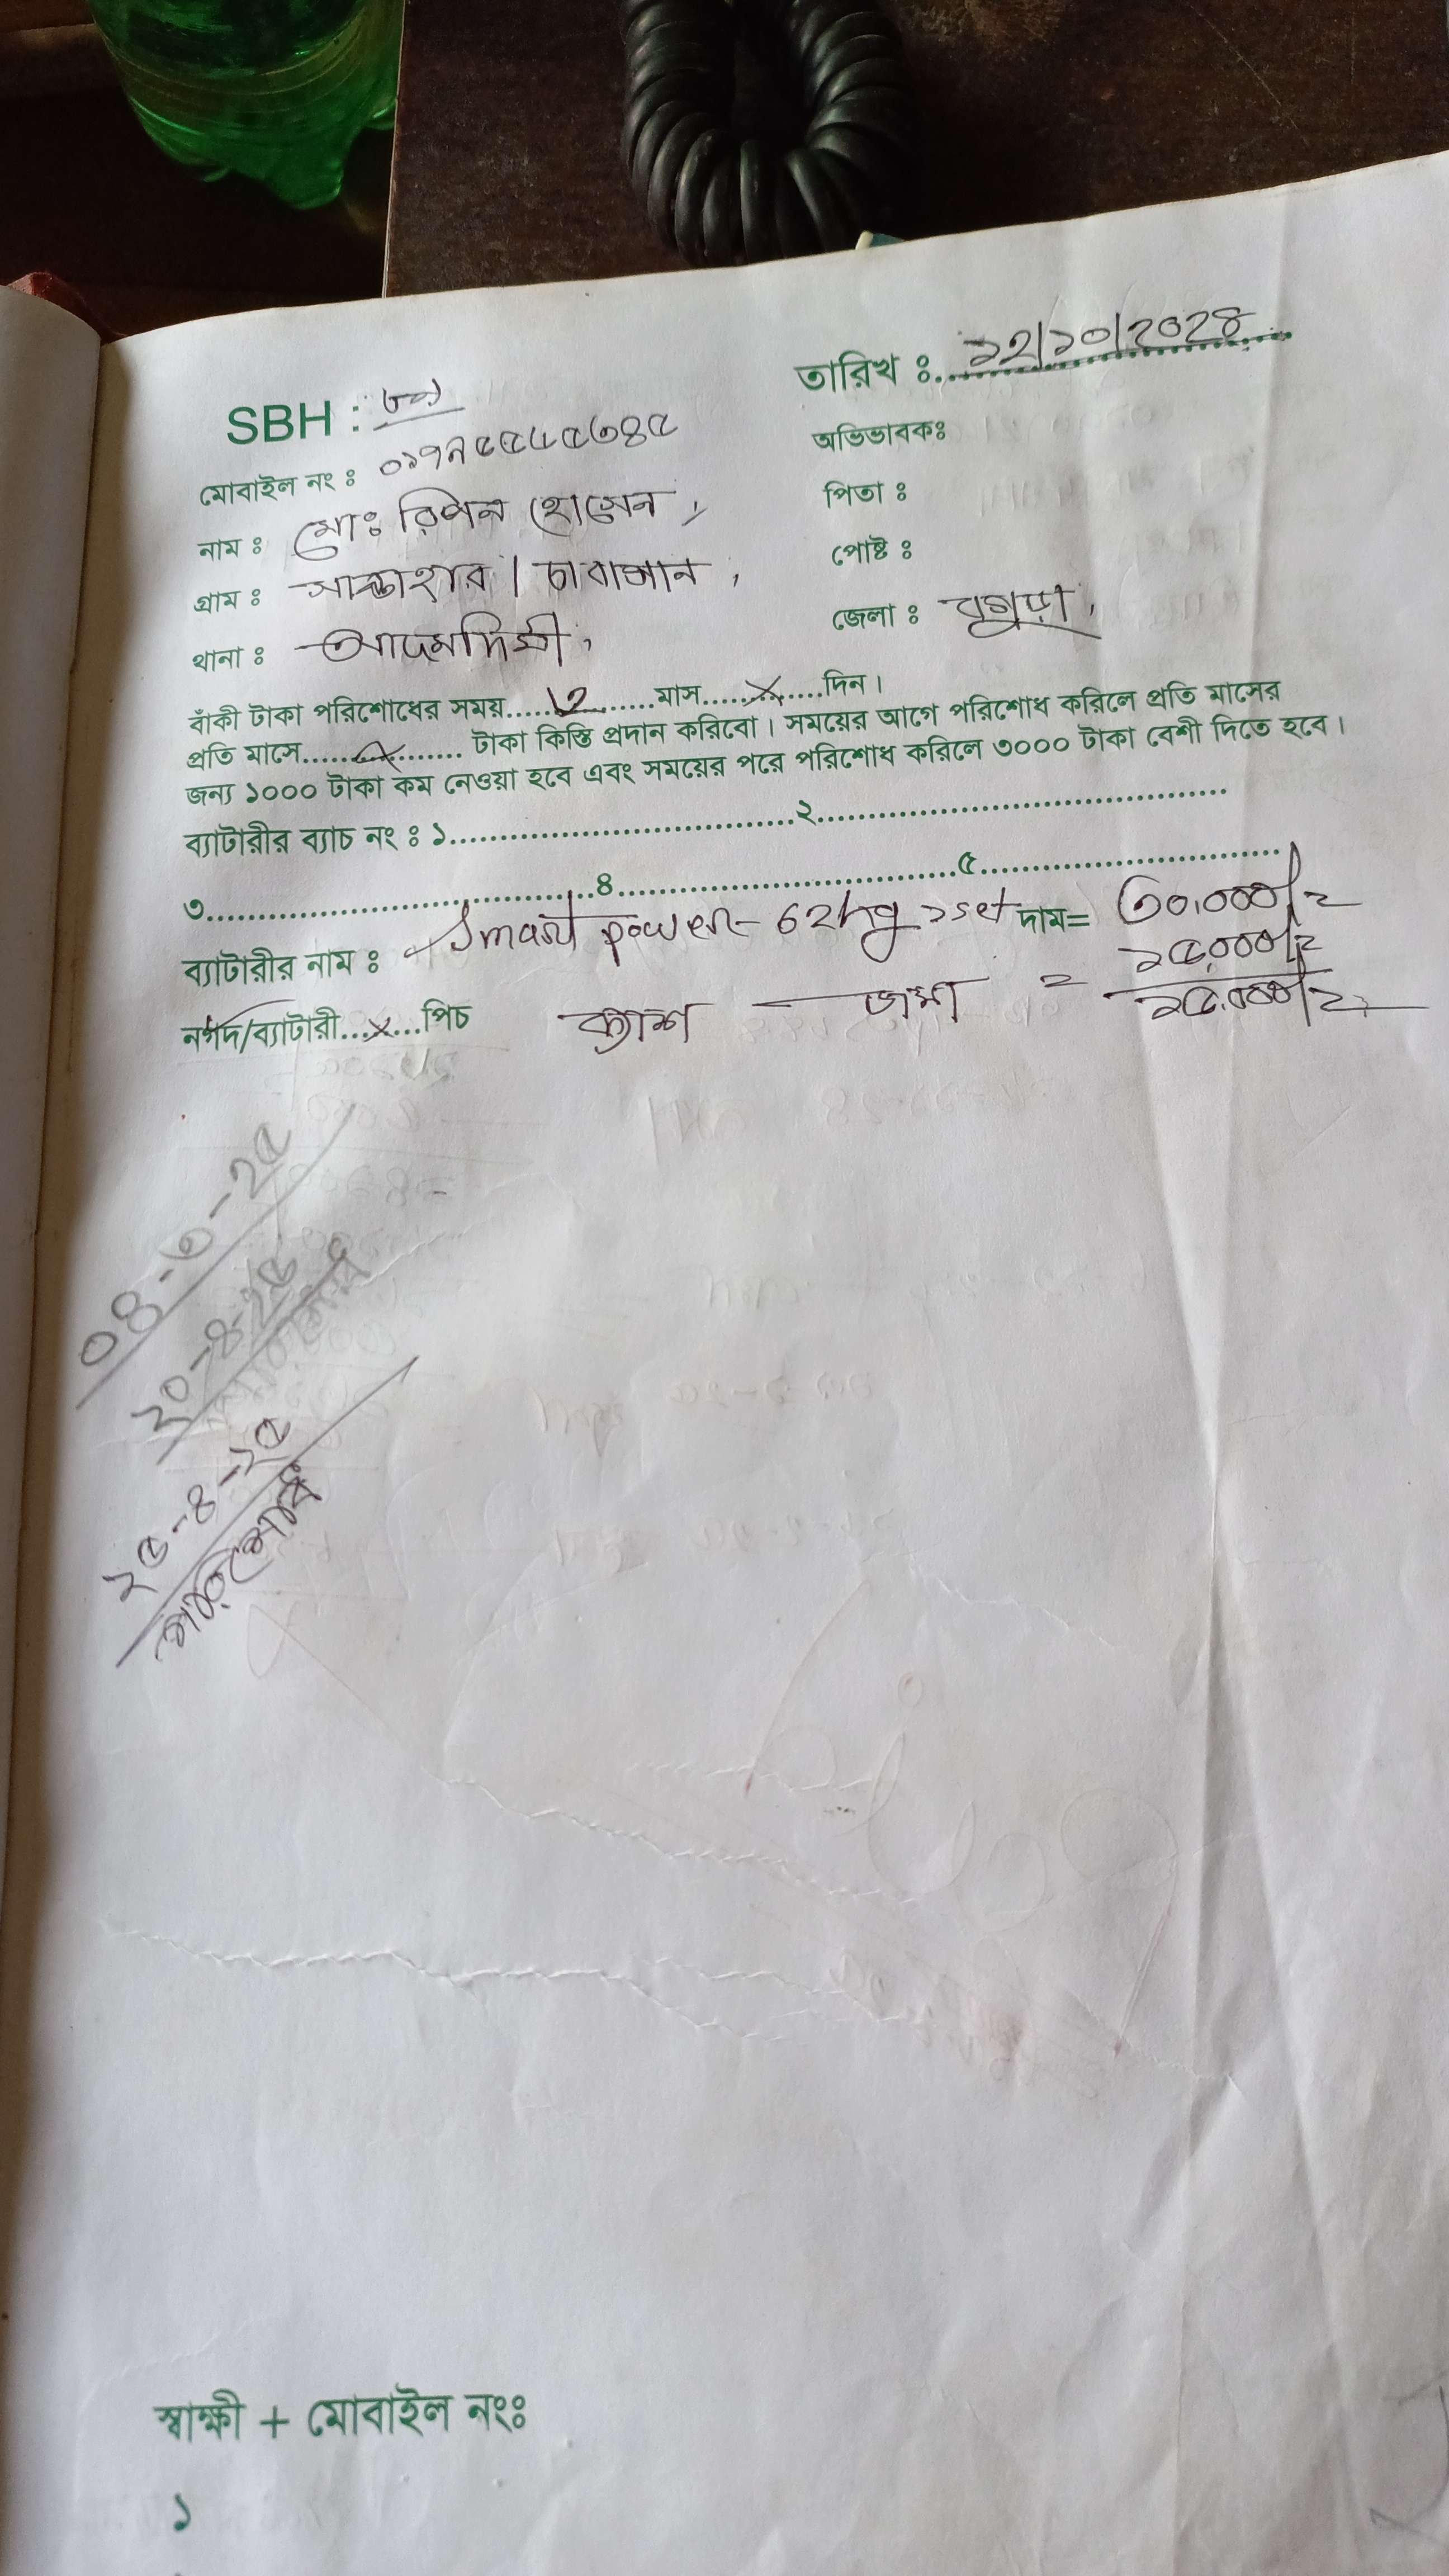 তারিখ ঃ ১২/১০/২০২৪
SBH :
মোবাইল নং ঃ
অভিভাবকঃ
নাম ঃ মোঃ রিপন হোসেন,
পিতা ঃ
গ্রাম ঃ সান্তাহার / চাবাগান,
পোষ্ট ঃ
থানা ঃ আদমদিঘী,
জেলা ঃ বগুড়া,
বাঁকী টাকা পরিশোধের সময়......৬......মাস......x......দিন।
প্রতি মাসে......x...... টাকা কিস্তি প্রদান করিবো। সময়ের আগে পরিশোধ করিলে প্রতি মাসের
জন্য ১০০০ টাকা কম নেওয়া হবে এবং সময়ের পরে পরিশোধ করিলে ৩০০০ টাকা বেশী দিতে হবে।
ব্যাটারীর ব্যাচ নং ঃ ১..............................২..............................
৩..............................৪..............................৫..............................
ব্যাটারীর নাম ঃ Smart power- 62kg ১set দাম= ৩০,০০০/=
১৫,০০০/=
নগদ/ব্যাটারী...x...পিচ ক্যাশ — জমা = ১৫,০০০/=
০৪-৬-২৫
২০-৪-২৫
পরিশোধ
২৫-৪-২৫
পরিশোধ
স্বাক্ষী + মোবাইল নংঃ
১